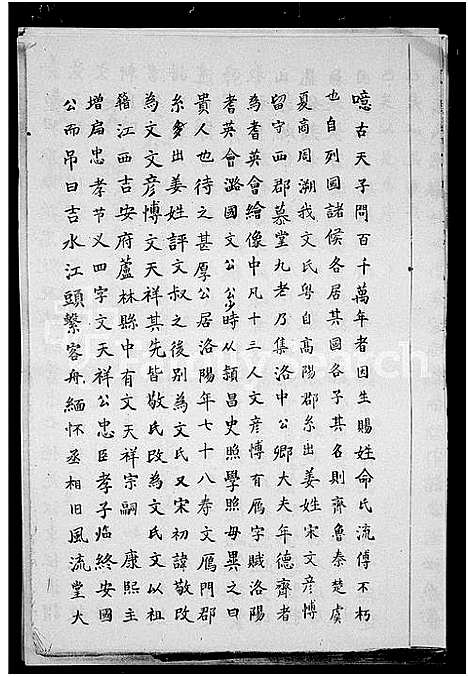 噫古天子問百千萬年者因生賜姓命氏流傳不朽
也自列國諸侯各居其國各子其名則齊魯秦楚虞
夏商周溯我文氏粤自高陽郡系出姜姓宋文彦愽
留守西郡慕堂九老乃集洛中公卿大夫年德齊者
為耆英會繪像中凡十三人文彦愽有雁字賦洛陽
耆英會潞國文公公少時从頴昌史照學照母異之曰
貴人也待之甚厚公居洛陽年七十八寿文鴈門郡
系多出姜姓評文叔之後别為文氏又宋初諱敬改
為文文彦愽文天祥其先皆敬氏改為文氏文以祖
籍江西吉安府蘆林縣中有文天祥宗嗣 康熙主
增扁忠孝节义四字文天祥公忠臣孝子临終安國
公而吊曰吉水江頭繫客舟緬怀丞相旧風流堂大